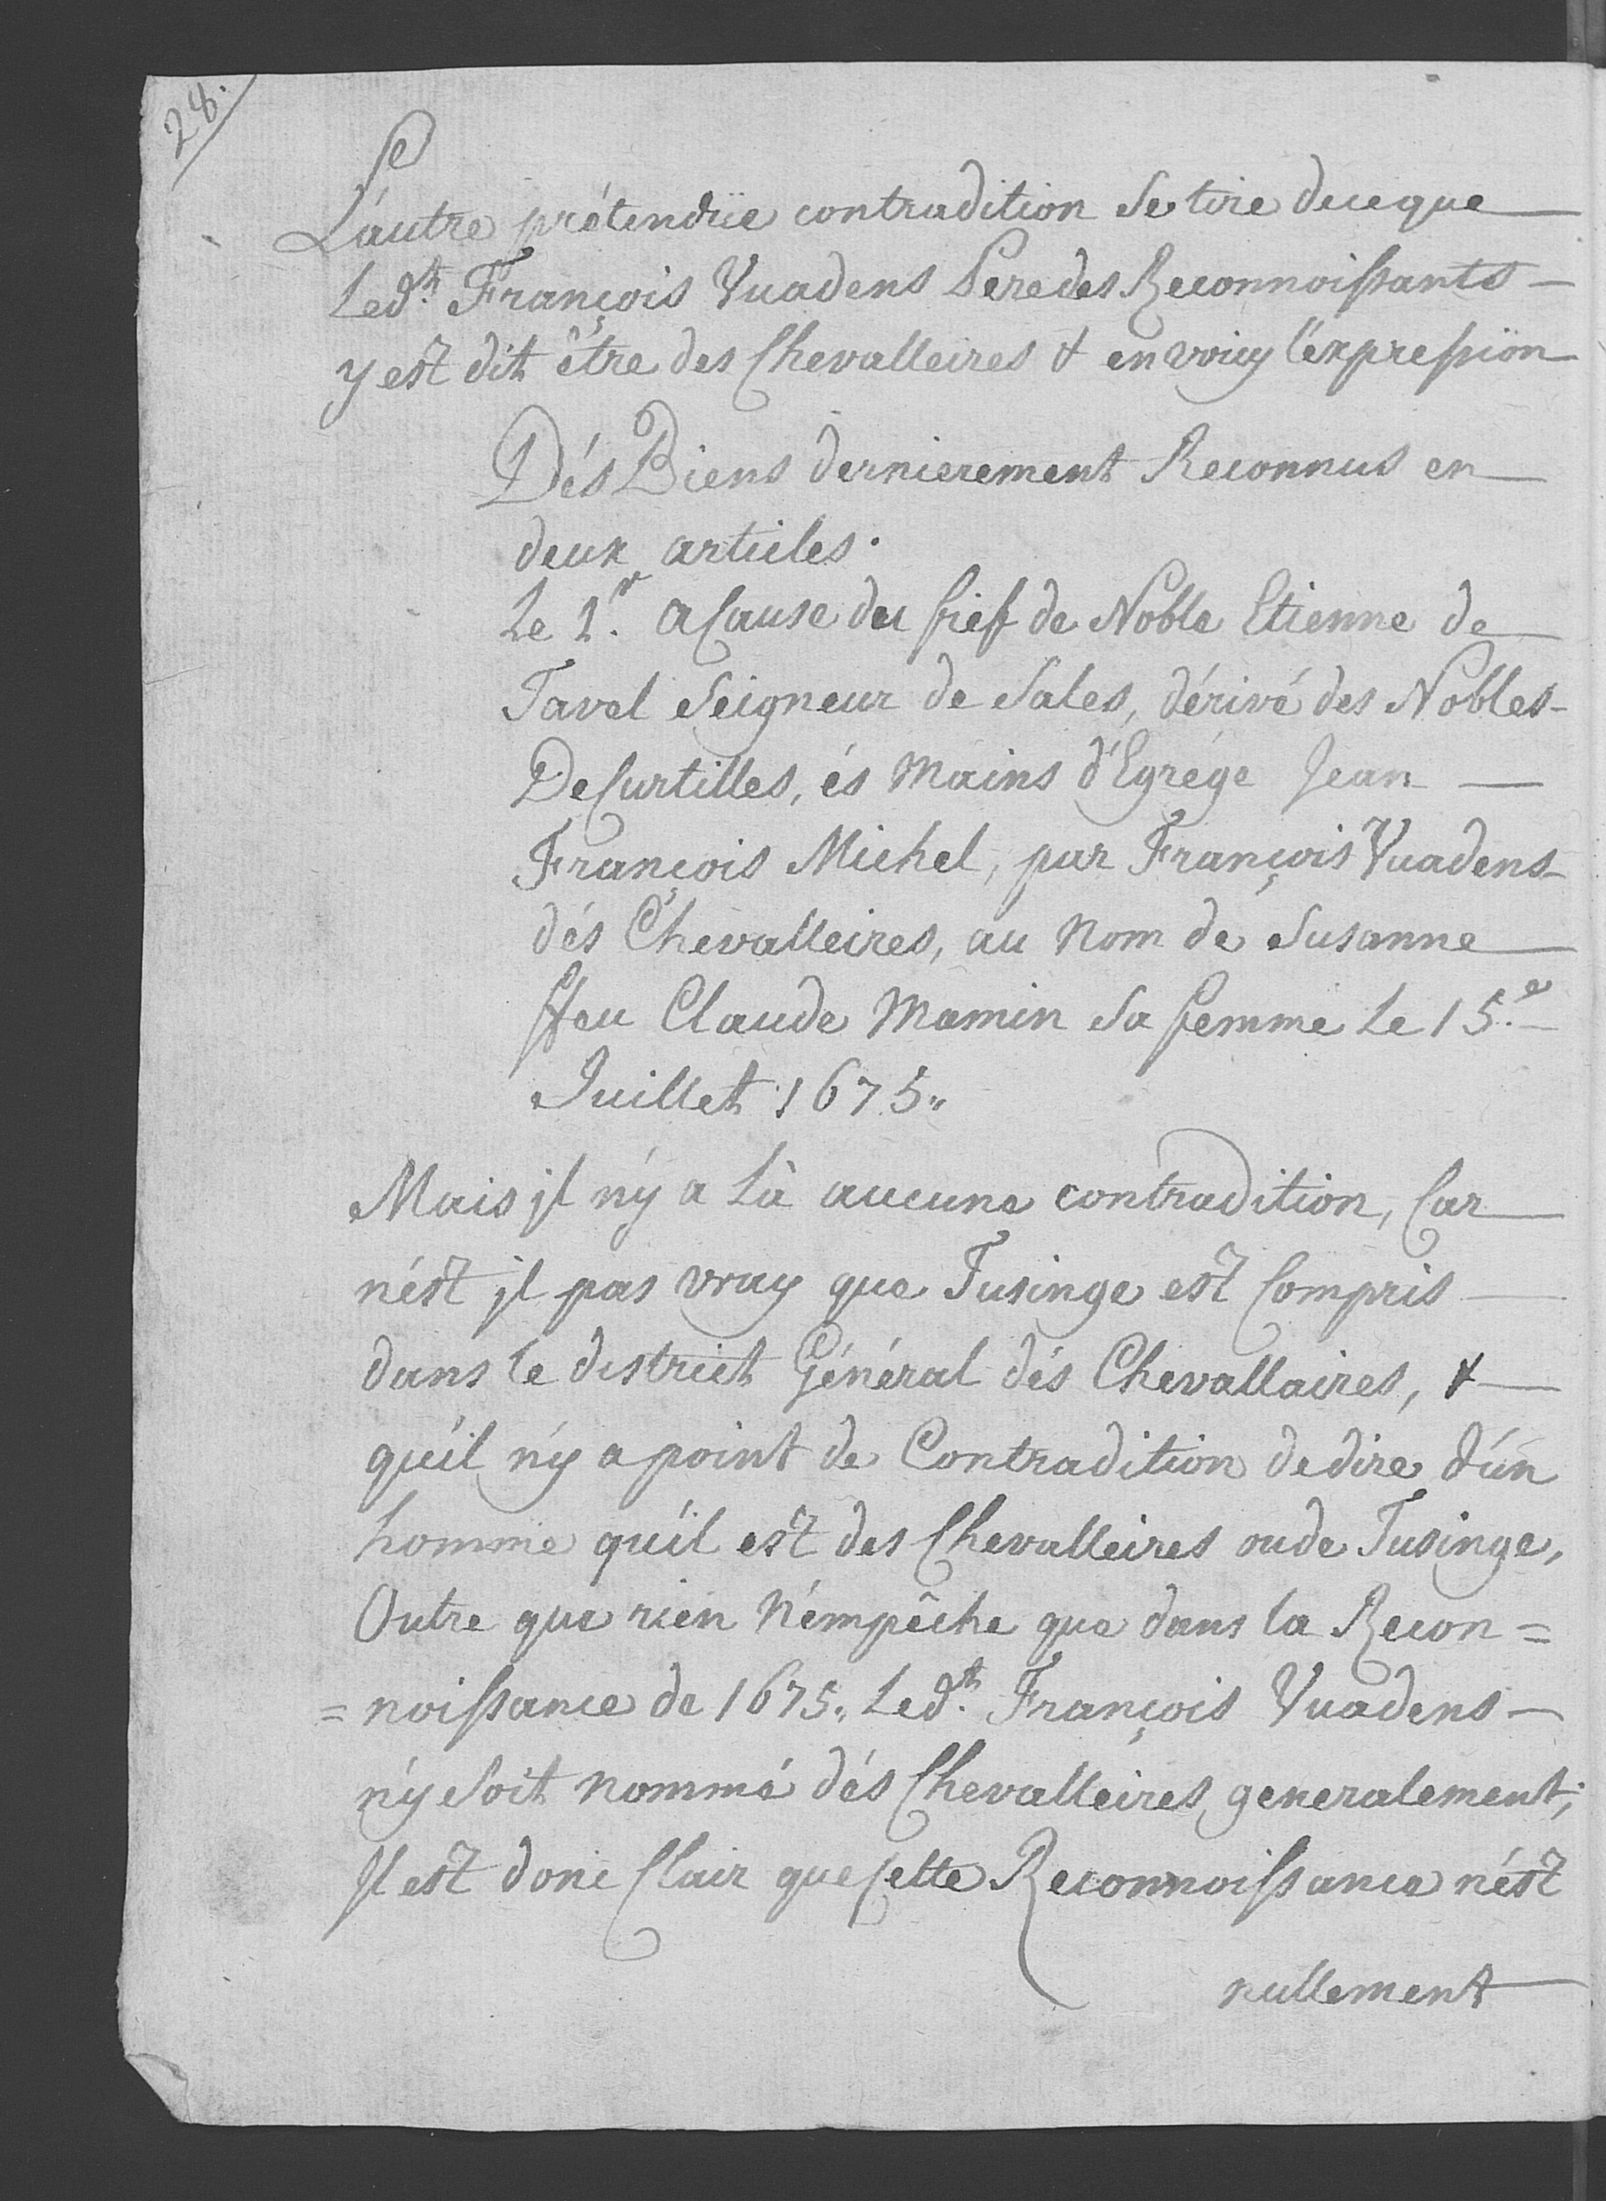 28.
L'autre prétendüe contradition se tire de ce que
Led.t François Vuadens Pere des Reconnoissants
y est dit être des Chevalleires & en voicy l'expression
Dés Biens dernierement Reconnus en
deux articles.
Le 1.r a Cause du fief de Noble Etienne de
Tavel Seigneur de Sales, dérivé des Nobles
De Curtilles, és mains d'Egrége Jean
François Michel, par François Vuadens
dés Chevalleires, au nom de Susanne
ffeu Claude Mamin sa femme Le 15.e
Juillet 1675.
Mais jl n'y a Là aucune contradition, Car
n'est jl pas vray que Tusinge est Compris
dans le district Général dés Chevallaires, &
qu'il n'y a point de Contradition de dire d'un
homme qu'il est des Chevalleires ou de Tusinge,
Outre que rien n'empêche que dans la Recon=
=noissance de 1675. Led.t François Vuadens
n'y soit nommé dés Chevalleires generalement;
Jl est donc Clair que Cette Reconnoissance n'est
nullement